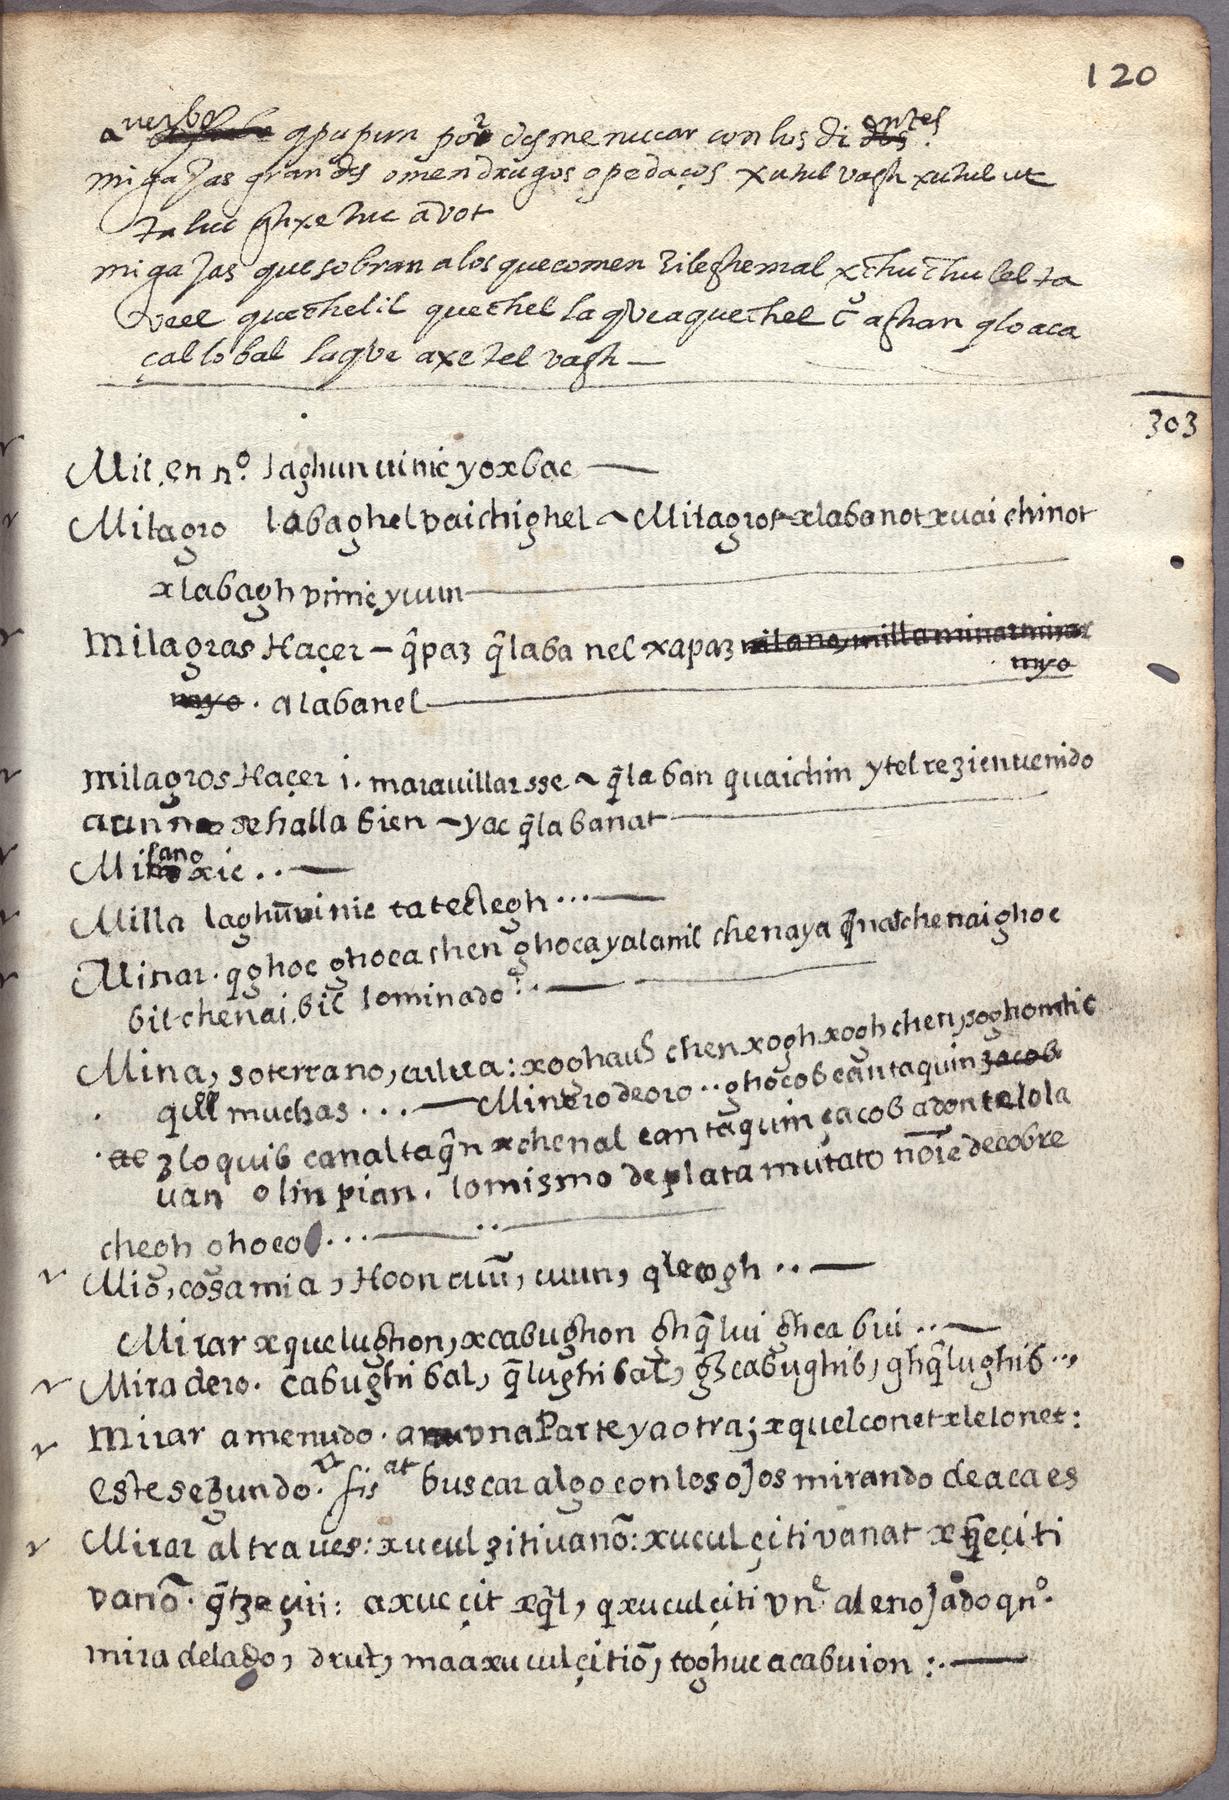 120
averbo qpupun por desmenucar con los di entes.
migajas grandes omendrugos opedaços xutul vagh xutul ut
ta luc ghxe tuc avot
migajas que sobran alos que comen zileghemal xchuchulel ta
veel quechelil quechel laqveaquechel c aghan qloaca
çal lobal laqve axe tel vagh —
303
Mil, en nº. laghun vinic yoxbac —
Milagro labaghel vaichighel ~ Milagros xlabanot xuaichinot
xlabagh vinic yuun
Milagros Haçer – q̃paz q̃labanel xapaz milano, milla minar minar
myo
myo . alabanel
milagros Haçer i. marauillarsse ~ q̃laban quaichin ytel rezien venido
aun no se halla bien ~ yac q̃labanat
Milano xic .. —
Milla laghũvinic tateclegh ... —
Minar . qghoc ghoca chen ghocayalanil chenaya q̃natchenaighoc
bil chenai.bil lominado :. —
Mina, soterrano, cueua: xoghaub chen xogh xogh chen, xoghomtic
. qill muchas ... — Minero de oro .. ghocob cantaquin zacob
. ae zloquib canaltaq̃n xchenal cantaquin çacob adontelola
uan olinpian. lo mismo de plata mutato nõie de cobre
chegh ghocob ... — ..
Mio, cosa mia, Hoon cuũ, cuun, qleogh .. —
Mirar xquelughon, xcabughon ghq̃lui ghcabui .. —
Miradero. cabughibal, q̃lughibal, ghcabughib, ghq̃lughib ..,
Mirar amenudo . a una Parte y a otra; xquelconet xlelonet:
este segundo. sis at buscar algo con los ojos mirando de aca es
Mirar al traues: xucul zitiuanõ: xuculçitivanat xq̃eçiti
vanõ . q̃tzeçiti: axuc çit xq̃l, qxuculçiti vnº al enojado qnº.
mira delado, drut, maaxuculçitiõ, toghuc acabuion :. —